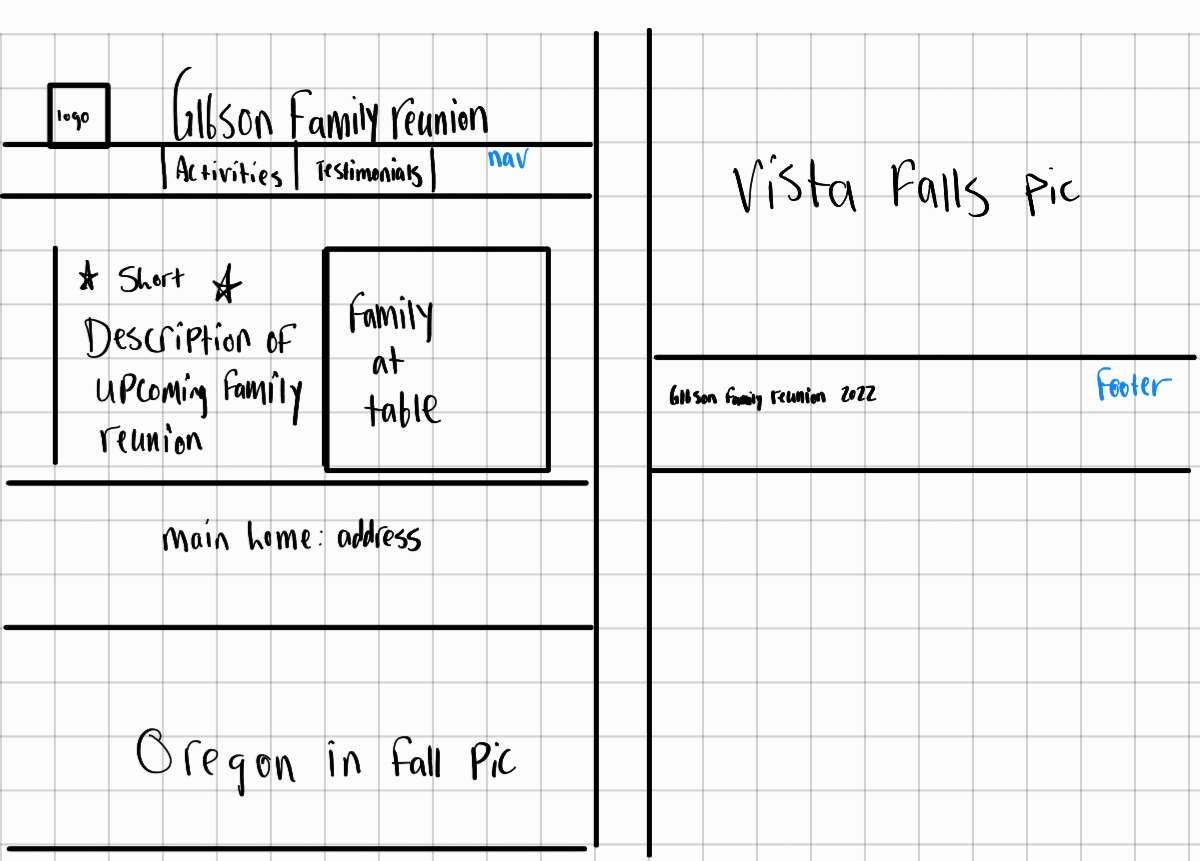 logo
Gibson Family reunion
Activities
Testimonials
nav
Short
Description of
upcoming family
reunion
Family
at
table
main home: address
Oregon in fall pic
Vista Falls pic
Gibson Family reunion 2022
Footer